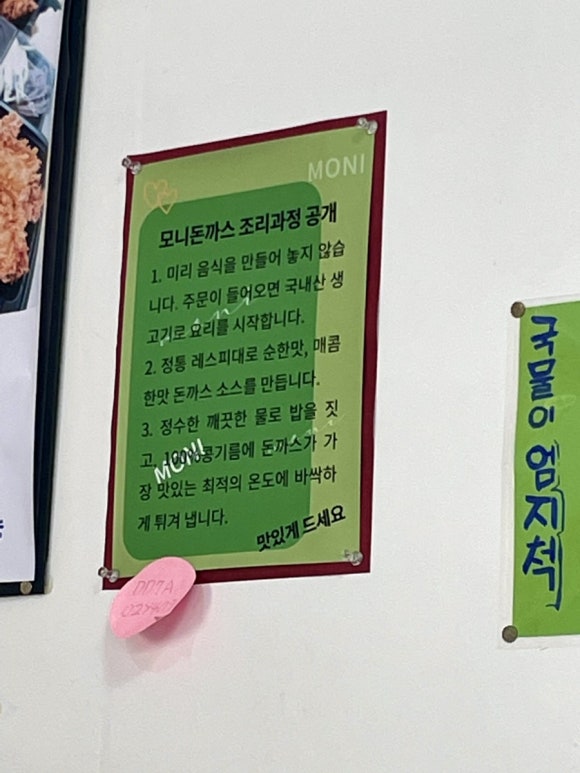 MONI
모니돈까스 조리과정 공개
1. 미리 음식을 만들어 놓지 않습
니다. 주문이 들어오면 국내산 생
고기로 요리를 시작합니다.
2. 정통 레스피대로 순한맛, 매콤
한맛 돈까스 소스를 만듭니다.
3. 정수한 깨끗한 물로 밥을 짓
고, 100%콩기름에 돈까스가 가
장 맛있는 최적의 온도에 바싹하
게 튀겨 냅니다.
MONI
맛있게 드세요
국물이 엄지척